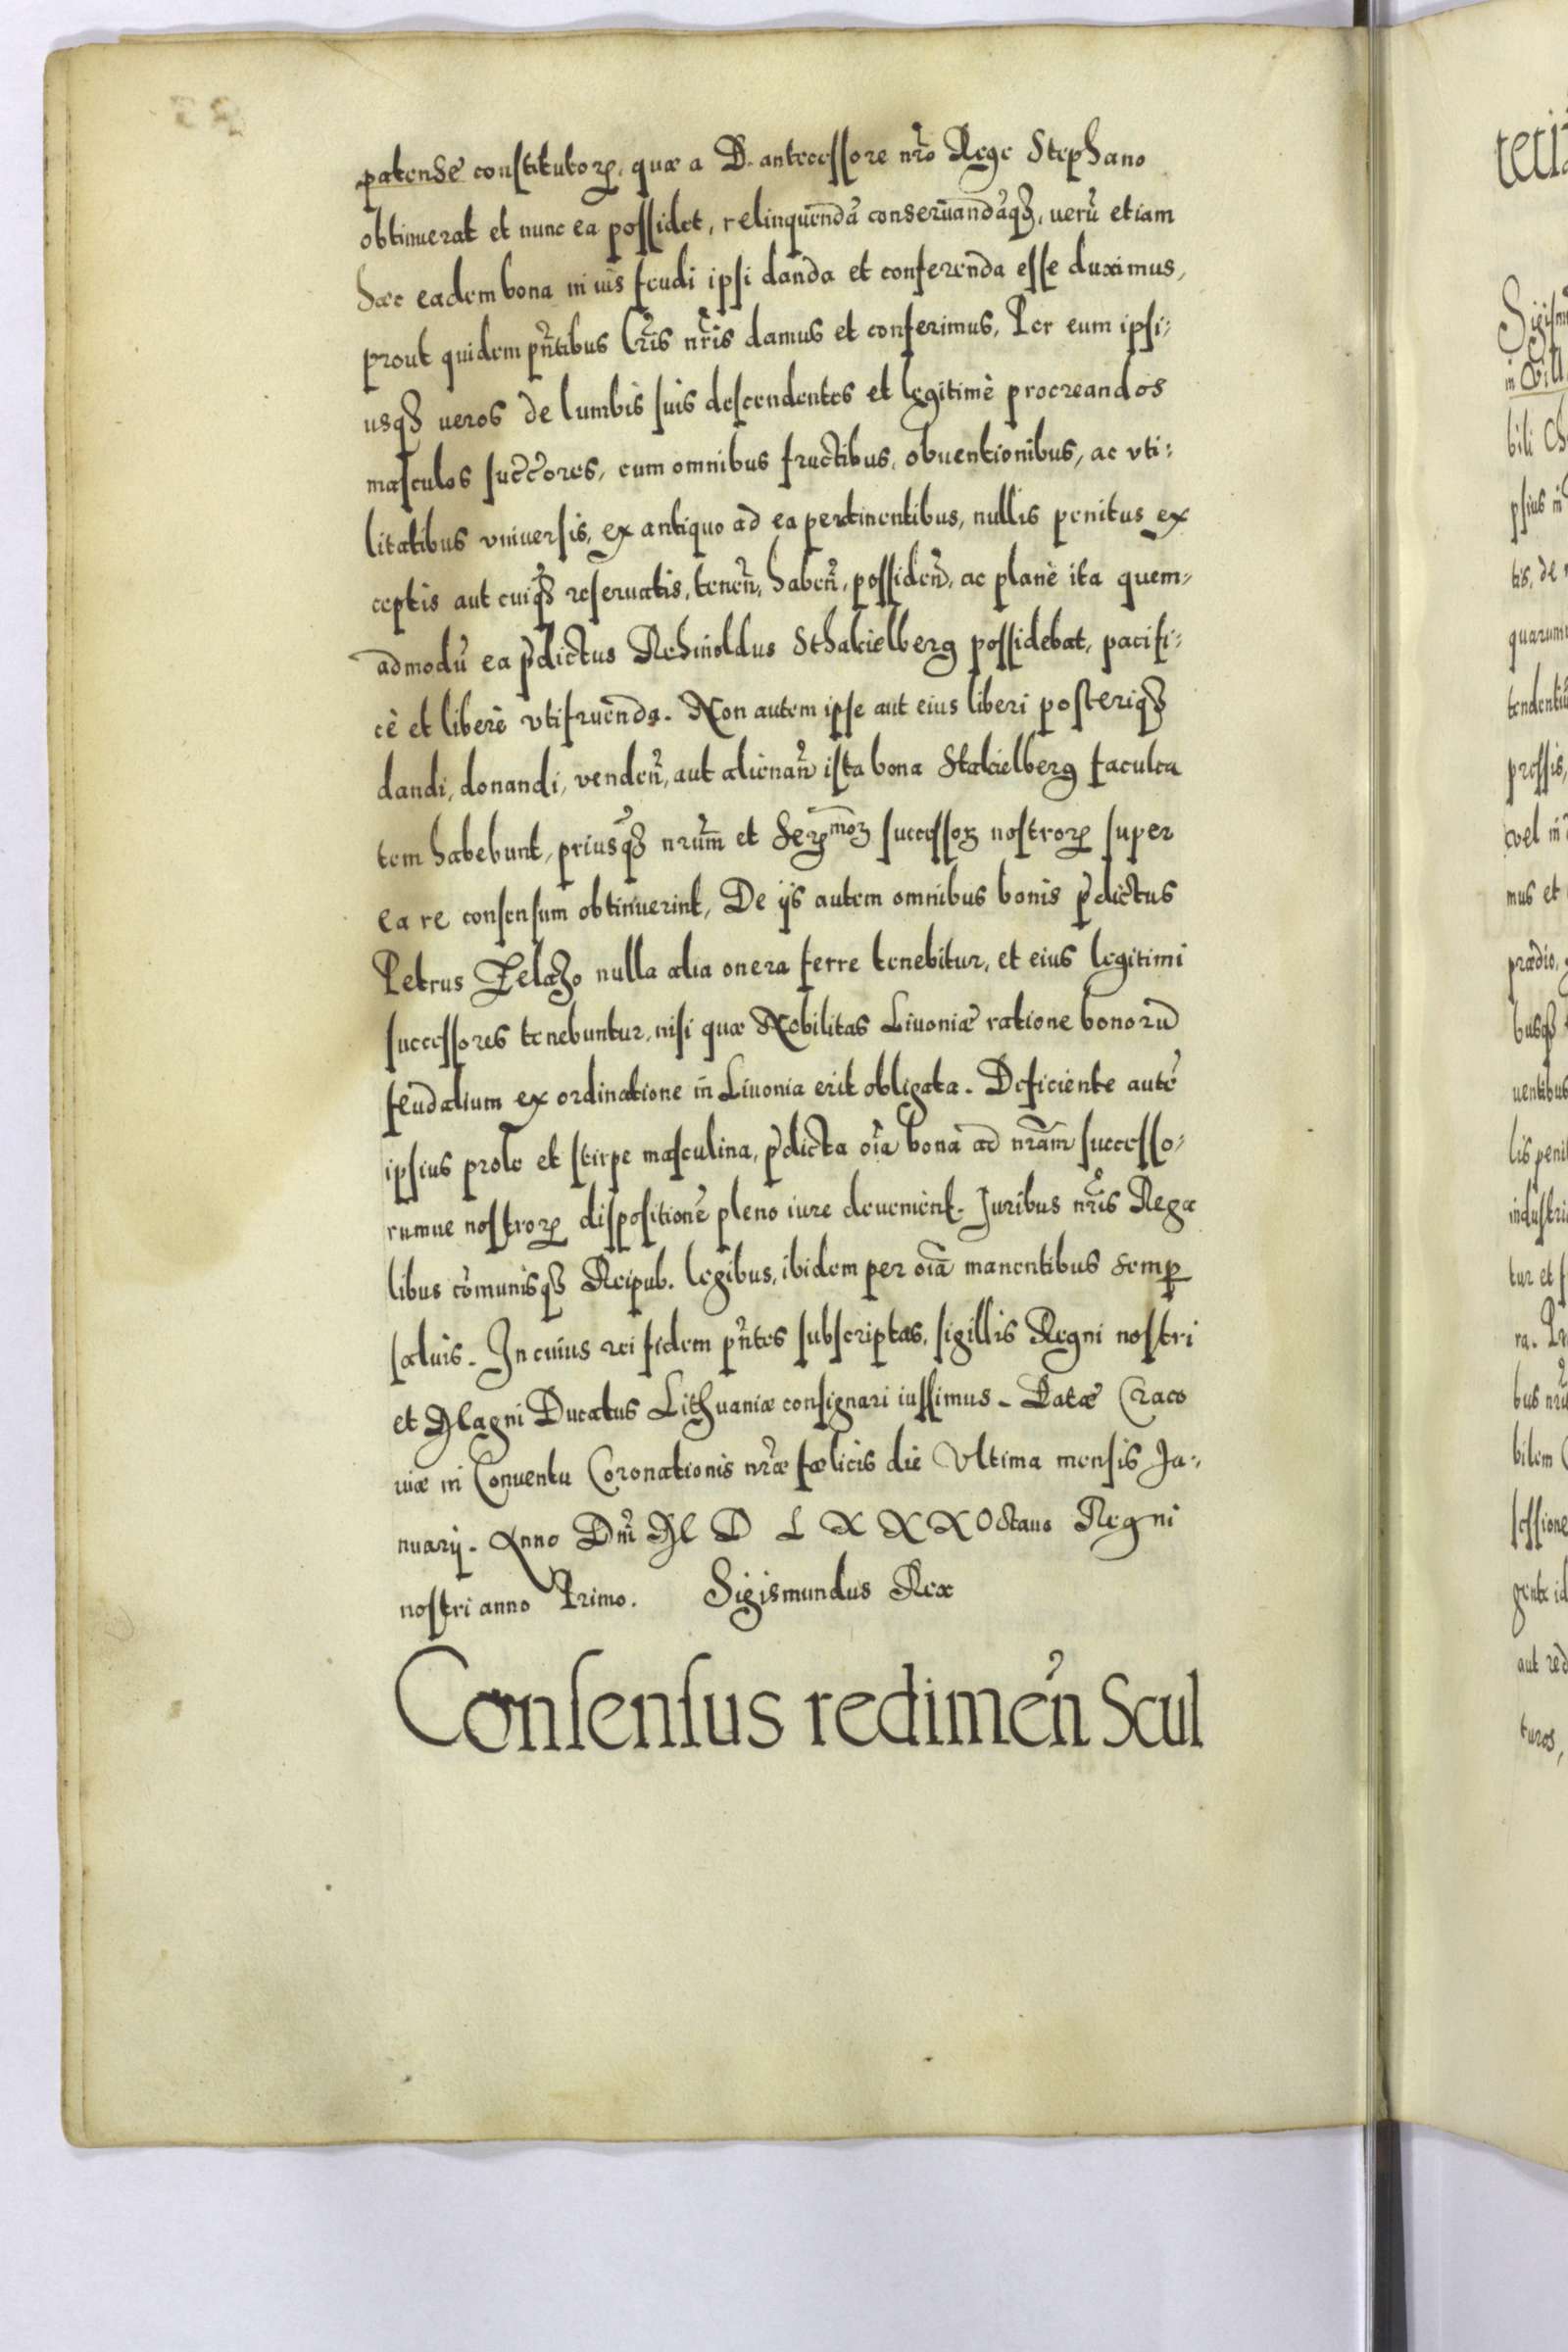 patensẽ constitutoꝝ, quæ a D. antecessore nrõ Rege Stephano
obtinuerat et nunc ea possidet, relinquendã conseruandãqȝ, uerũ etiam
hæc eadem bona in ius feudi ipsi danda et conferenda esse duximus,
prout quidem pñtibus lrĩs nrĩs damus et conferimus, Per eum ipsi⸗
usqȝ ueros de lumbis suis descendentes et legitimè procreandos
masculos succ̃ores, cum omnibus fructibus, obuentionibus, ac vti⸗
litatibus vniuersis, ex antiquo ad ea pertinentibus, nullis penitus ex
ceptis aut cuiq̃ȝ reseruatis, teneñ, habeñ, possideñ, ac planè ita quem⸗
admodũ ea p̃dictus Rehinoldus Sthakielberg possidebat, pacifi⸗
cè et liberè vtifruenda. Non autem ipse aut eius liberi posteriqȝ
dandi, donandi, vendeñ, aut alienañ ista bona Stakielberg faculta
tem habebunt, priusq̃ȝ nrũm et Serᵐᵒꝝ successoꝝ nostroꝝ super
ea re consensum obtinuerint, De ijs autem omnibus bonis p̃dictus
Petrus Zelazo nulla alia onera ferre tenebitur, et eius legitimi
successores tenebuntur, nisi quæ Nobilitas Liuoniæ ratione bonorũ
feudalium ex ordinatione in Liuonia erit obligata. Deficiente autẽ
ipsius prole et stirpe masculina, p̃dicta oĩa bona ad nrãm successo⸗
rumue nostroꝝ dispositionẽ pleno iure deuenient. Juribus nrĩs Rega
libus cõmunisqȝ Reipub. legibus, ibidem per oĩa manentibus semꝑ
saluis. In cuius rei fidem pñtes subscriptas, sigillis Regni nostri
et Magni Ducatus Lithuaniæ consignari iussimus. Datæ Craco
uiæ in Conuentu Coronationis nrǣ fœlicis die Vltima mensis Ja⸗
nuarij. Anno Dñi M D L X X X Octauo Regni
nostri anno Primo. Sigismundus Rex
Consensus redimeñ Scul